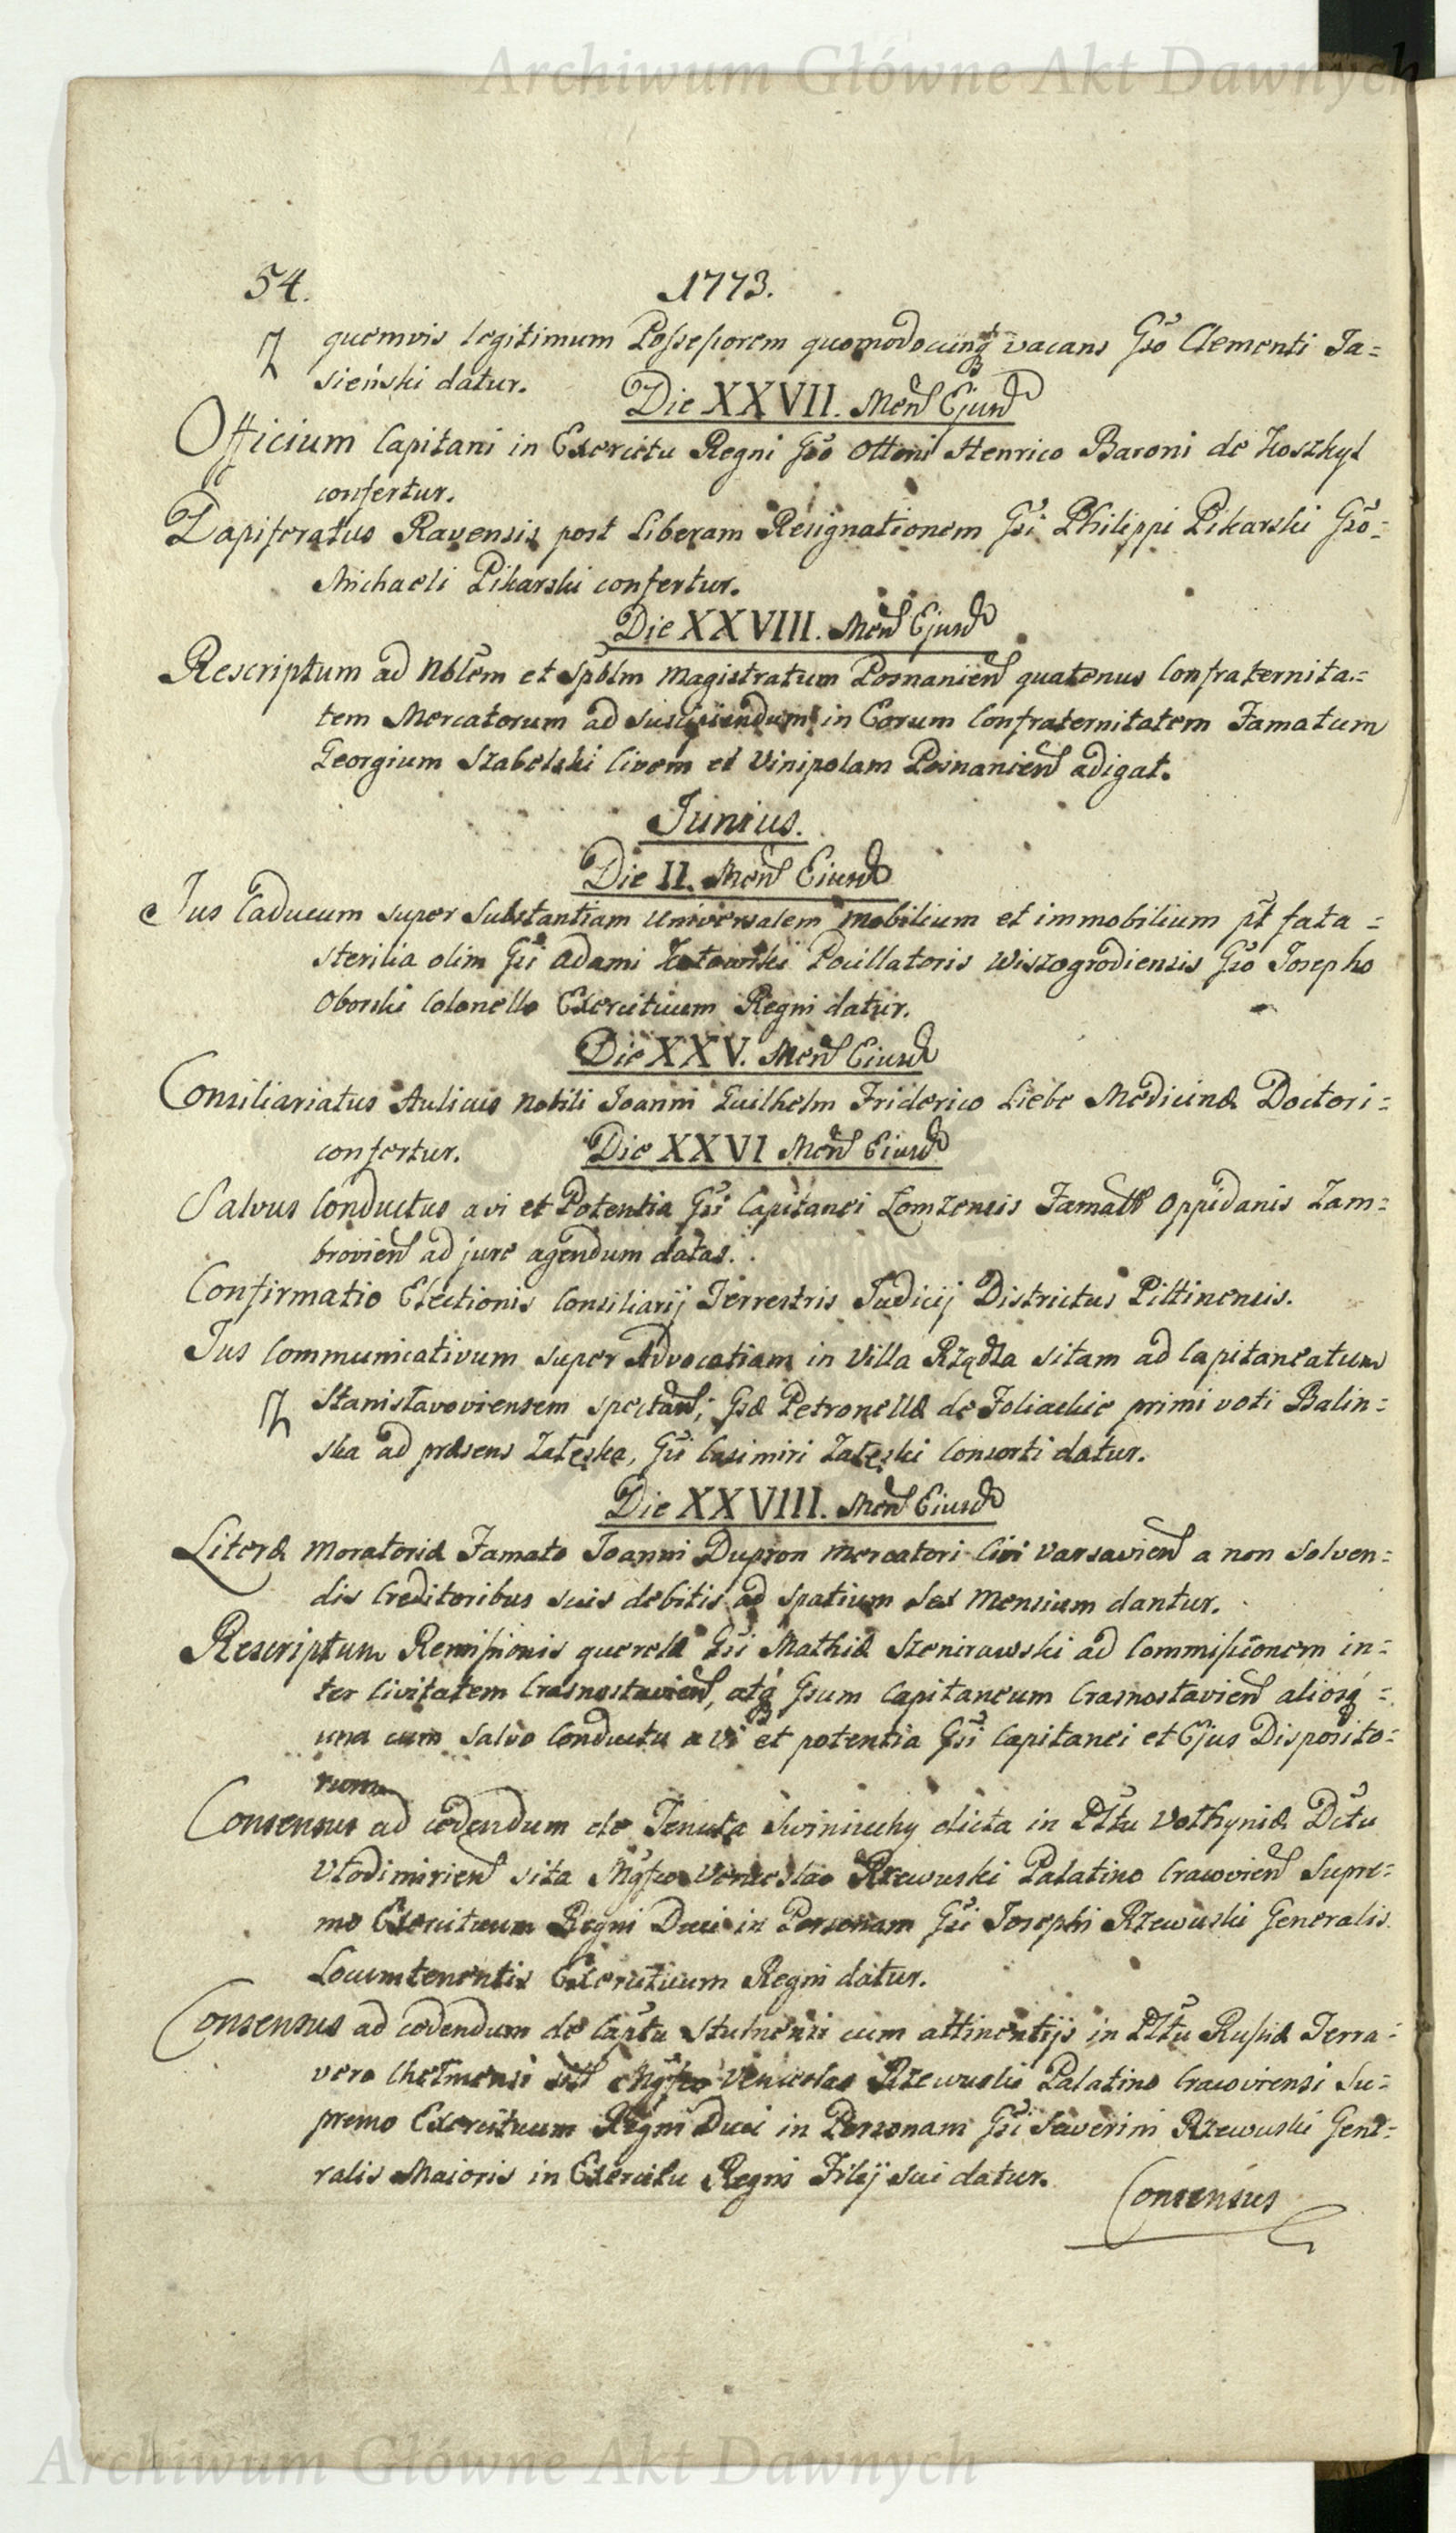 Archiwum Główne Akt Dawnych
54. 1773.
quemvis legitimum Possessorem quomodocunq vacans Gso Clementi Ja=
sieński datur.
Die XXVII. Mens Ejusd
Officium Capitani in Exercitu Regni Gso Ottoni Henrico Baroni de Koszkyl
confertur.
Dapiferatus Ravensis post Liberam Resignationem Gsi Philippi Pikarski Gso=
Michaeli Pikarski confertur.
Die XXVIII. Mens Ejusd
Rescriptum ad Nblem et Spblm Magistratum Posnanien quatenus Confraternita=
tem Mercatorum ad suscipiendum in Eorum Confraternitatem Famatum
Georgium Szabelski Civem et Vinipolam Posnanien adigat.
Junius.
Die II. Mens Eiusd
Jus Caducum super Substantiam Universalem mobilium et immobilium pt fata=
sterilia olim Gsi Adami Pocillatoris Wiszogrodiensis Gso Josepho
Oborski Colonello Exercituum Regni datur.
Die XXV. Mens Eiusd
Consiliariatus Aulicus Nobili Joanni Guilhelm Friderico Liebe Medicinæ Doctori=
confertur.
Die XXVI Mens Eiusd
Salvus Conductus a vi et Potentia Gsi Capitanei Łomzensis Famatis Oppidanis Zam=
brovien ad jure agendum datas.
Confirmatio Electionis Consiliarij Terrestris Judicij Districtus Piltinensis.
Jus Communicativum super Advocatiam in Villa Rządza sitam ad Capitaneatum
Stanisłavoviensem spectan; Gsæ Petronellæ de Foliackie primi voti Balin=
ska ad præsens Załęska, Gsi Casimiri Załęski Consorti datur.
Die XXVIII. Mens Eiusd
Literæ Moratoriæ Famato Joanni Dupron Mercatori Civi Varsavien a non solven=
dis Creditoribus suis debitis ad spatium sex Mensium dantur.
Rescriptum Remissionis querelæ Gsi Mathiæ Szenirawski ad Commissionem in=
ter Civitatem Crasnostavien, atq Gsum Capitaneum Crasnostavien aliosq=
una cum salvo Conductu a vi et potentia Gsi Capitanei et Ejus Disposito=
rum
Consensus ad cedendum de Tenuta Swiniuchy dicta in PLttu Vołhyniæ Dctu
Vlodimirien sita Mgfco Venceslao Rzewuski Palatino Cracovien Supre=
mo Exercituum Regni Duci in Personam Gsi Josephi Rzewuski Generalis
Locumtenentis Exercituum Regni datur.
Consensus ad cedendum de Captu Stulnensi cum attinentijs in PLttu Russiæ Terra=
vero Chełmensi Mgfco Venceslao Rzewuski Palatino Cracoviensi Su=
premo Exercituum Regni Duci in Personam Gsi Severini Rzewuski Gene=
ralis Maioris in Exercitu Regni Filij sui datur.
Consensus
Archiwum Główne Akt Dawnych